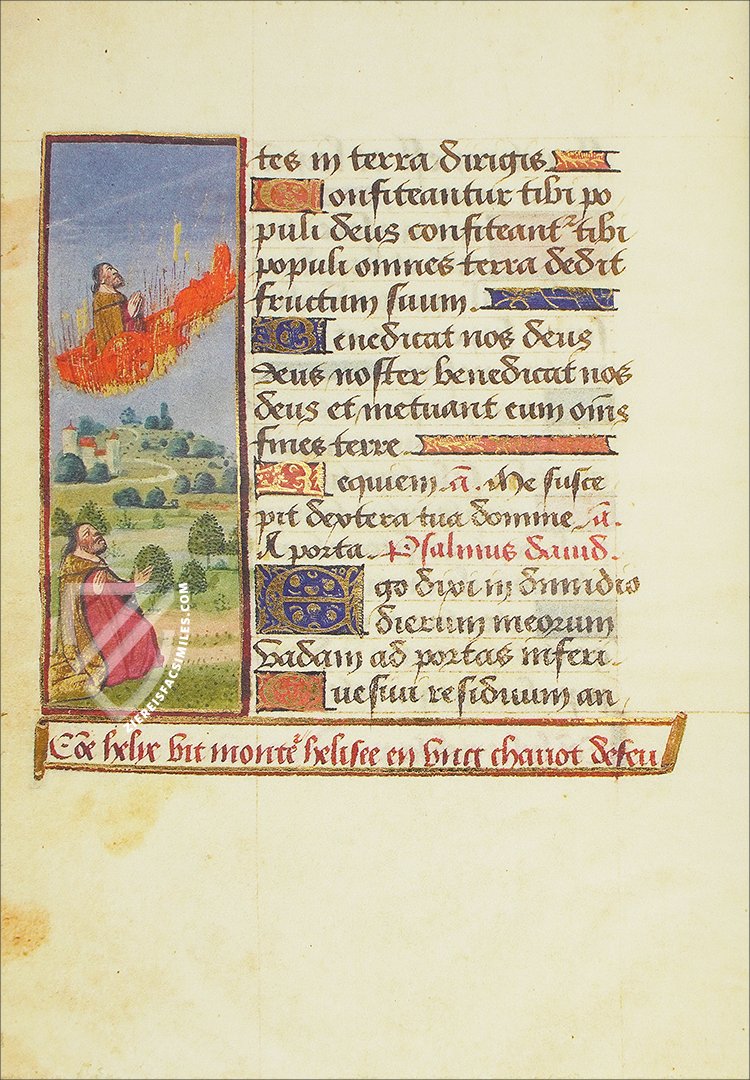 tes in terra dirigis
Confiteantur tibi po
puli deus confiteant tibi
populi omnes terra dedit
fructum suum.
Benedicat nos deus
deus noster benedicat nos
deus et metuant eum oms
fines terre.
Requiem. a. Me susce
pit dextera tua domine a.
A porta. Psalmus dauid.
Ego dixi in dimidio
dierum meorum
vadam ad portas inferi.
Quesiui residuum an
Cõe helie vit monte helisee en vng chariot de feu
WWW.ZIEREISFACSIMILES.COM